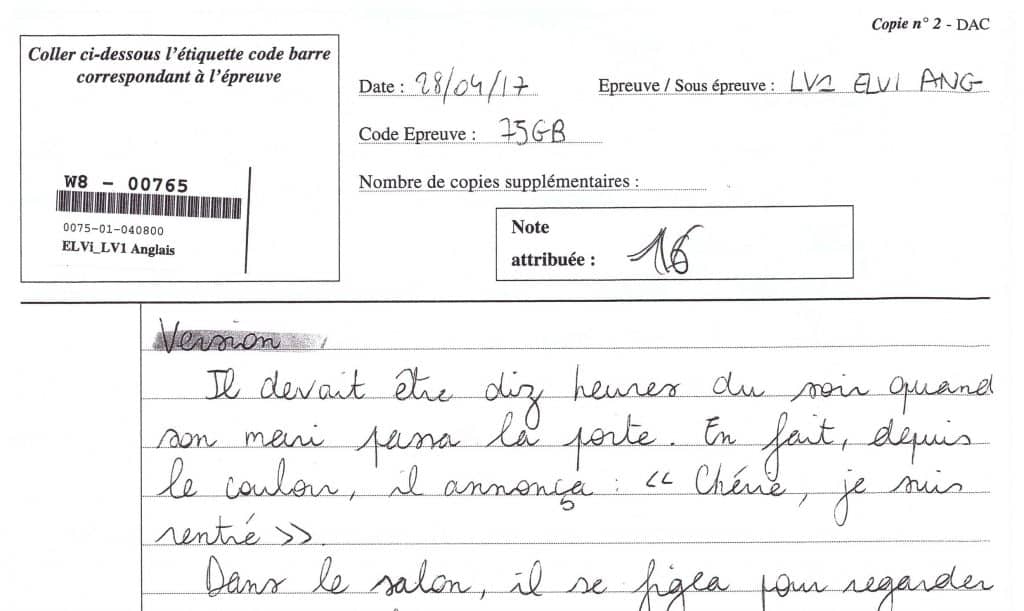 Copie n° 2 - DAC
Coller ci-dessous l'étiquette code barre
correspondant à l'épreuve
Date : 28/04/17
Epreuve / Sous épreuve : LV1 ELVI ANG
Code Epreuve : 75GB
W8 - 00765
Nombre de copies supplémentaires :
0075-01-040800
ELVi_LV1 Anglais
Note
attribuée : 16
Version
Il devait être dix heures du soir quand
son mari passa la porte. En fait, depuis
le couloir, il annonça : << Chérie, je suis
rentré >>.
Dans le salon, il se figea pour regarder